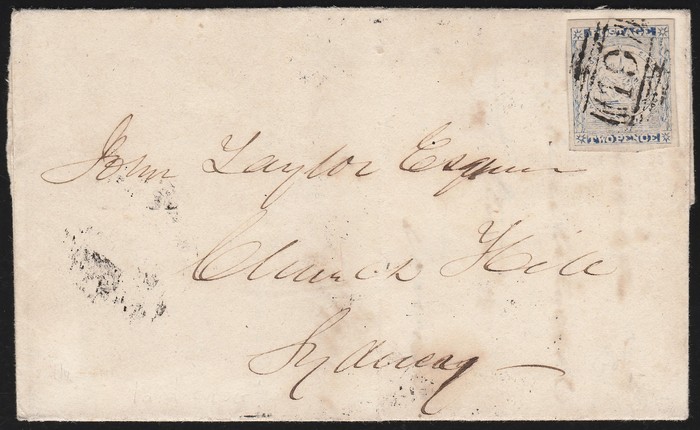 POSTAGE
10
TWO PENCE
John Taylor Esquire
Church Hill
Sydney